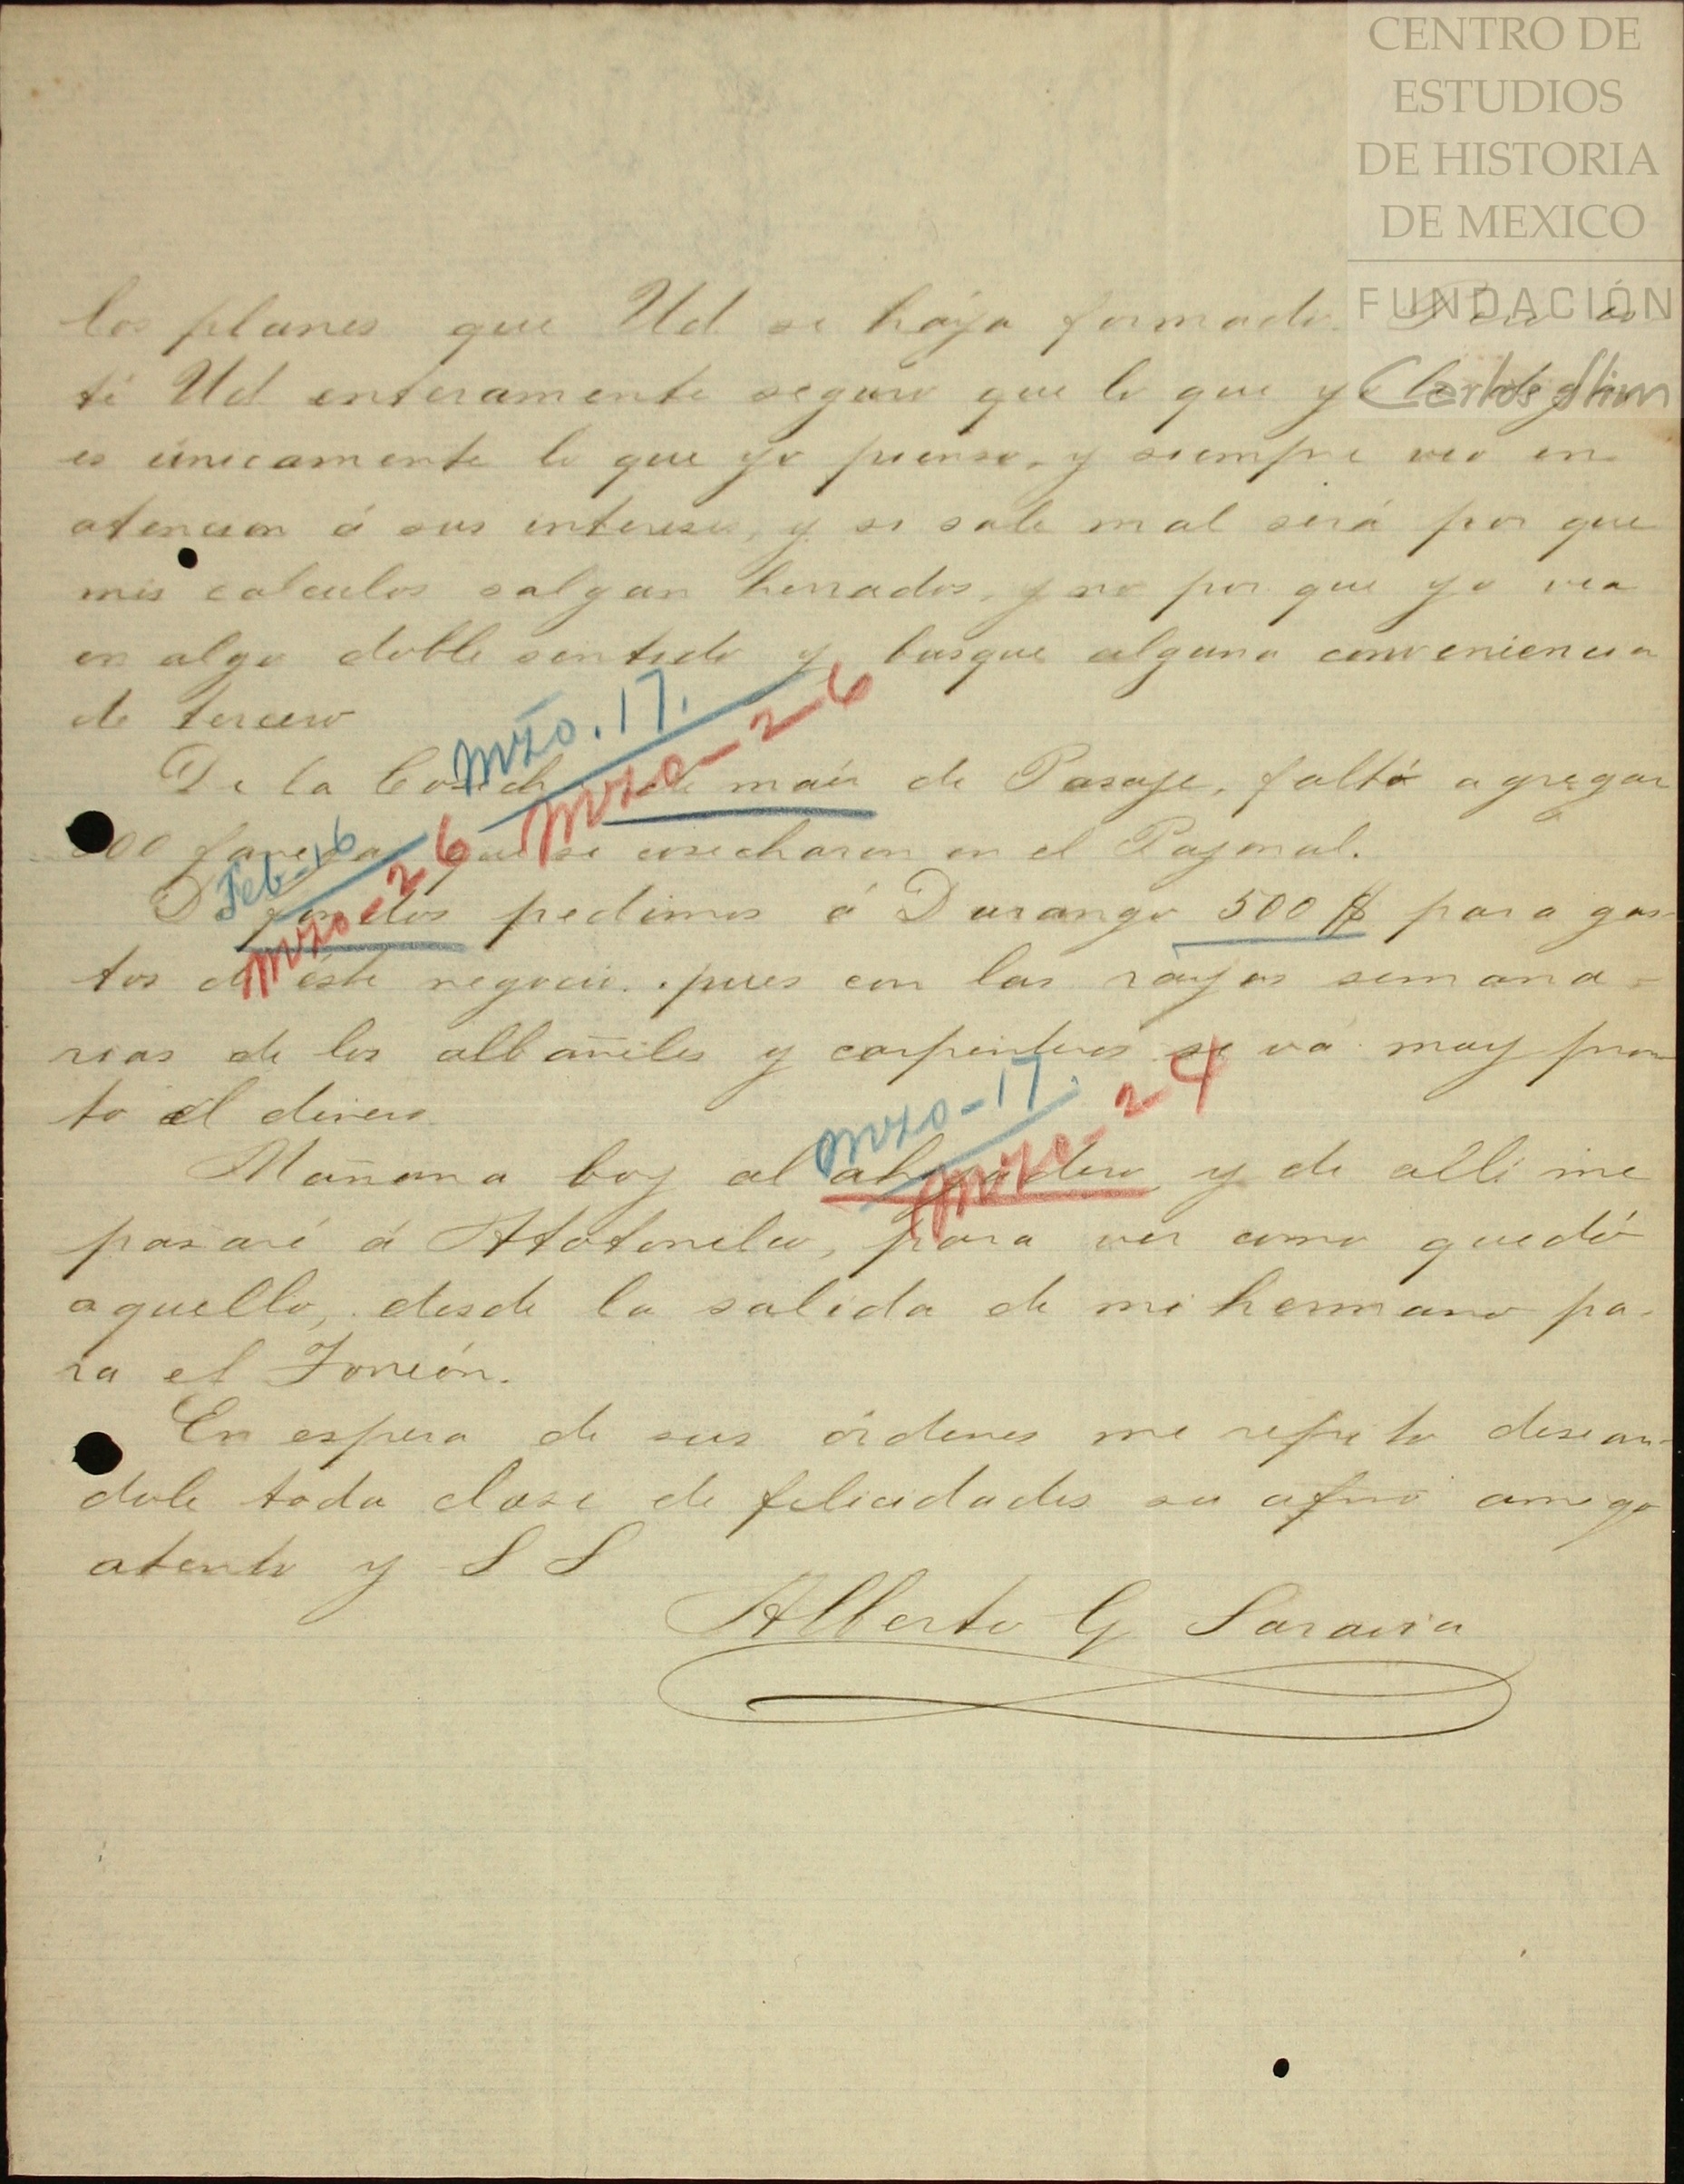 CENTRO DE
ESTUDIOS
DE HISTORIA
DE MEXICO
FUNDACIÓN
Carlos Slim
los planes que Ud se háya formado. Pero es-
té Ud enteramente seguro que lo que yo le digo
es únicamente lo que yo pienso, y siempre veo en
atencion á sus intereses, y si sale mal será por que
mis calculos salgan herrados, y no por que yo vea
en algo doble sentido y busque alguna conveniencia
de tercero
Mzo. 17.
Mzo-26
De la Cosecha de maíz de Pasaje, faltó agregar
00 fanegas que se cosecharon en el Pajonal.
Feb-16
Mzo-26
De fondos pedimos á Durango 500 $ para gas-
tos de éste negocio. pues con las ráyas semana-
rias de los albañiles y carpinteros se vá muy pron-
to el dinero.
Mzo-17.
Mzo-24
Mañana boy al ahijadero, y de alli me
pasaré á Atotonilco, para ver como quedó
aquello, desde la salida de mi hermano pa-
ra el Torreón.
En espera de sus órdenes me repito desean-
dole toda clase de felicidades su afmo amigo
atento y S S
Alberto G Saravia